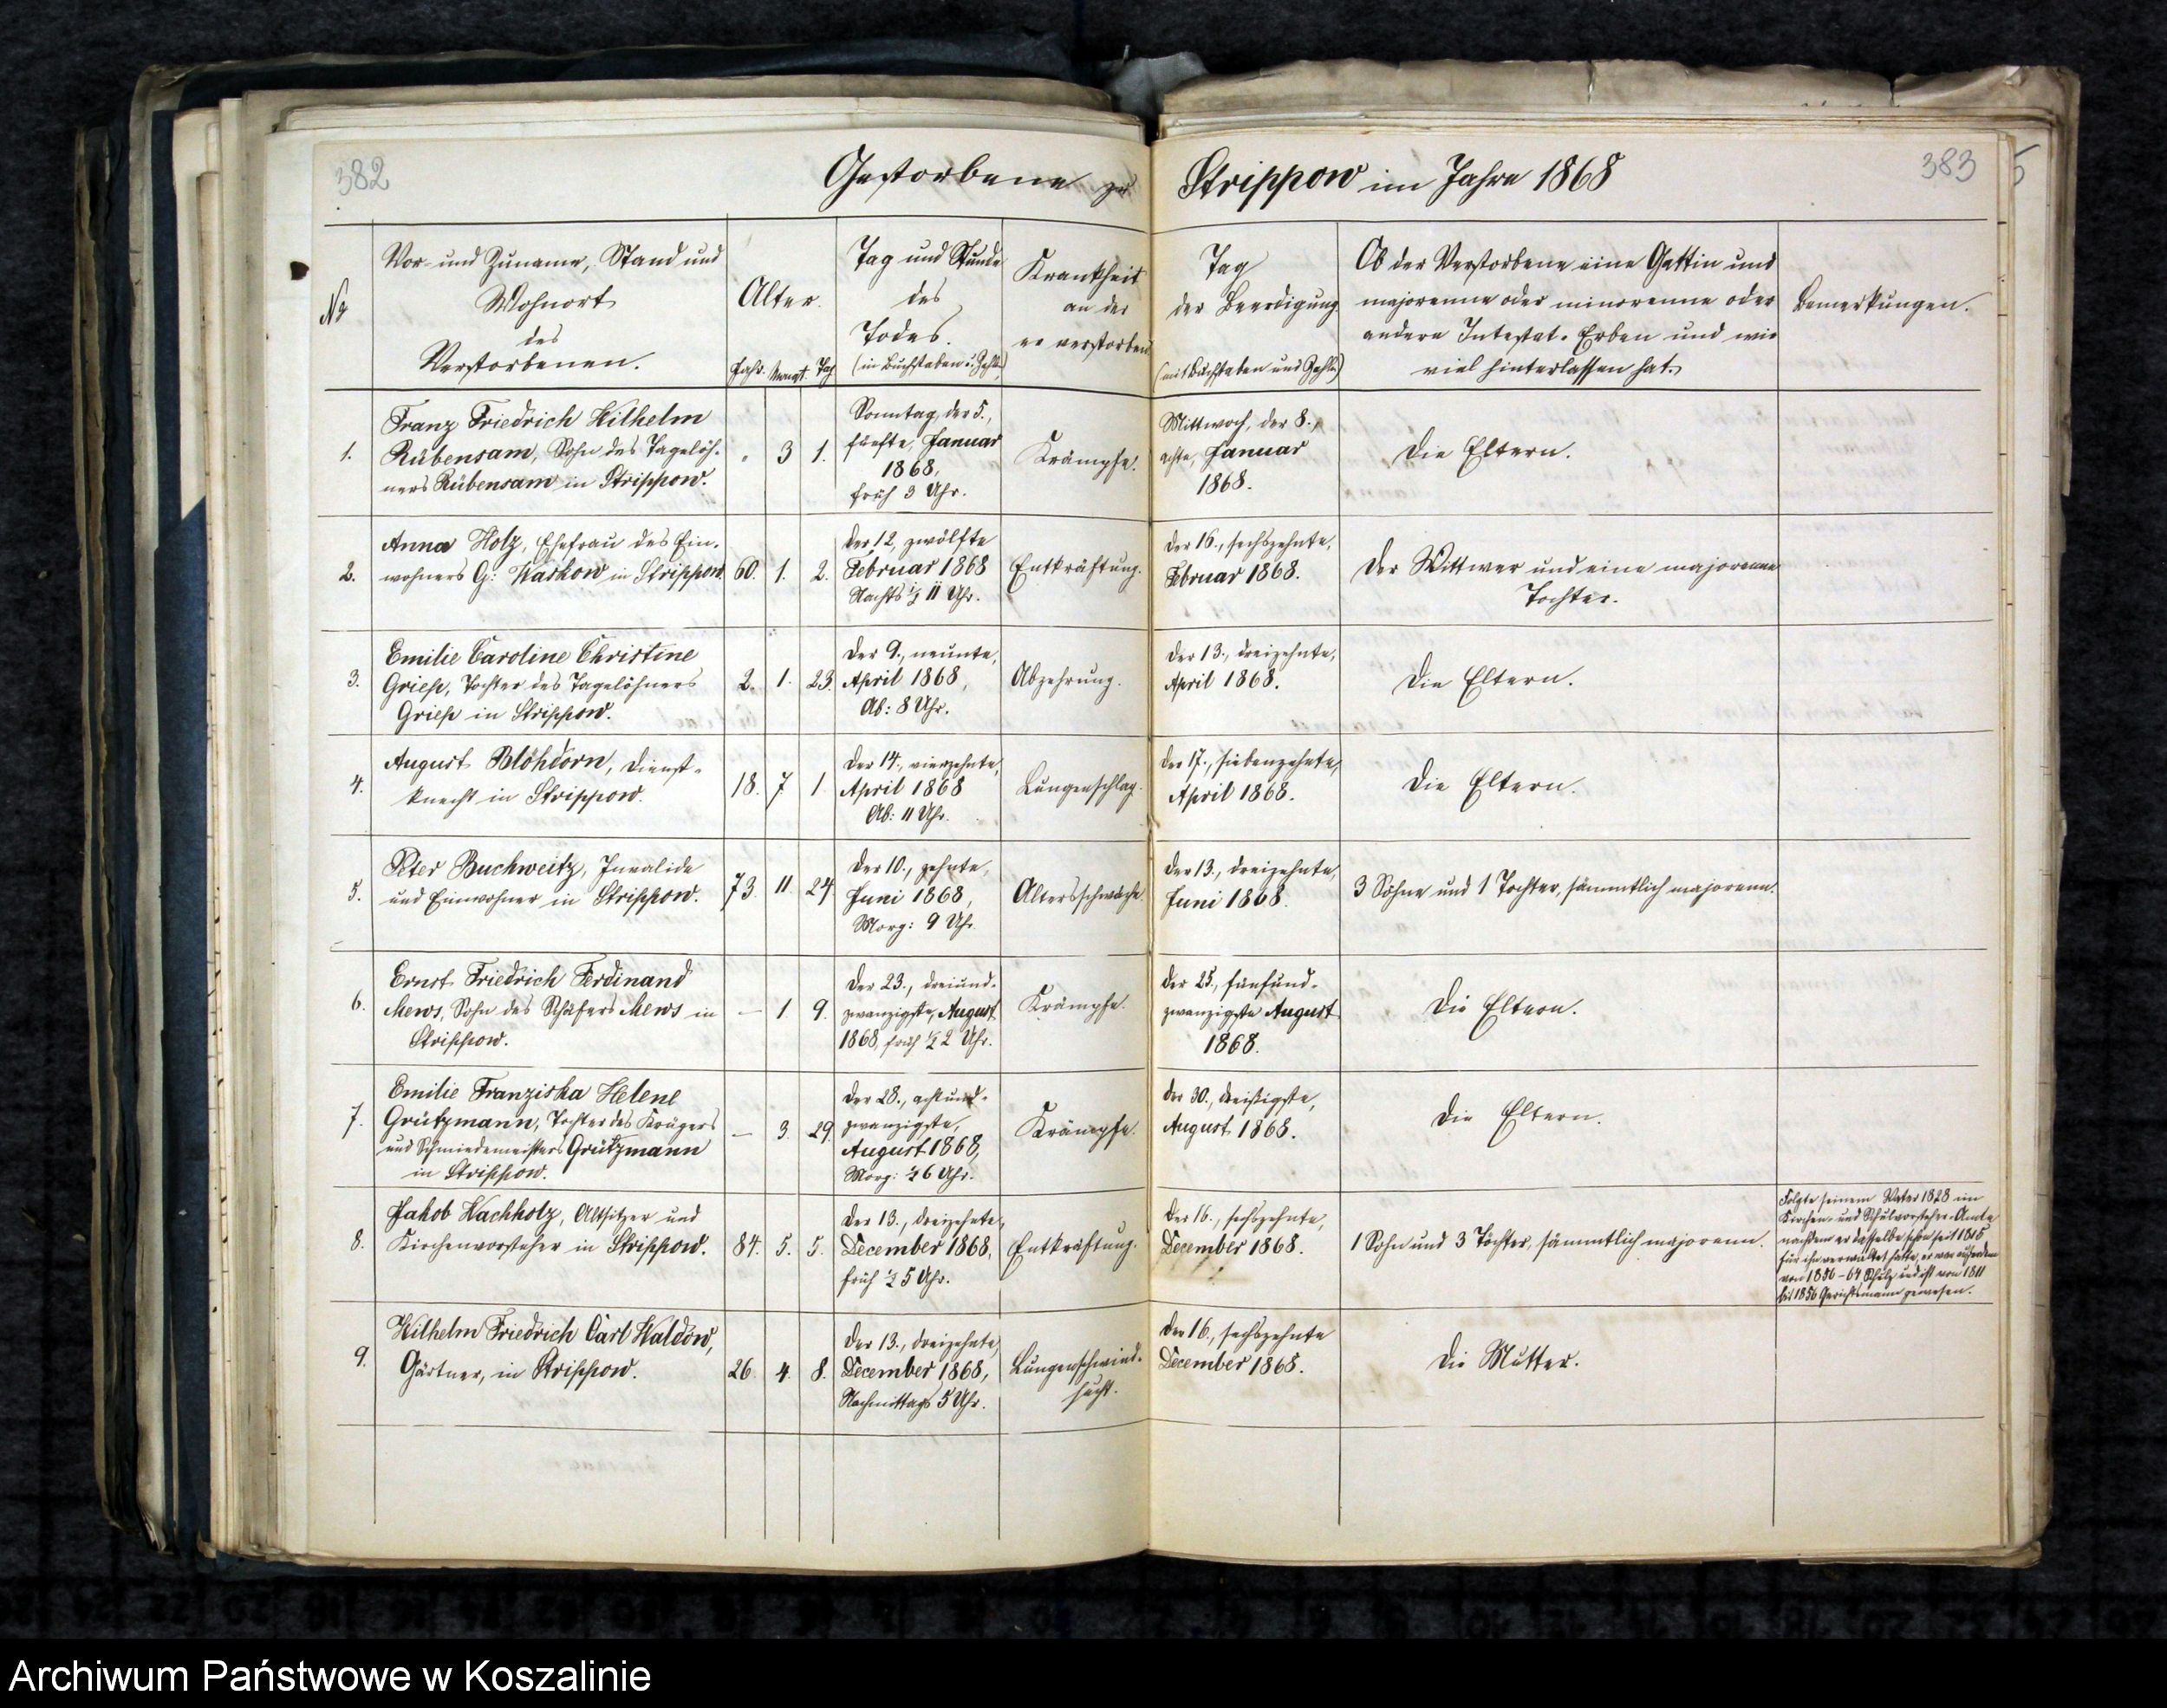 382
383
5
Gestorbene zu Strippow im Jahre 1868
№
Vor- und Zuname, Stand und
Wohnort
des
Verstorbenen.
Alter.
Jahr. Monat. Tag
Tag und Stunde
des
Todes.
(in Buchstaben u. Zahlen)
Krankheit
an der
er verstorben
Tag
der Beerdigung
(mit Buchstaben und Zahlen)
Ob der Verstorbene eine Gattin und
majorenne oder minorenne oder
andere Intestat-Erben und wie
viel hinterlassen hat.
Bemerkungen.
1.
Franz Friedrich Wilhelm
Rübensam, Sohn des Tagelöh-
ners Rübensam in Strippow.
" 3 1.
Sonntag, der 5.,
fünfte, Januar
1868,
früh 3 Uhr.
Krämpfe.
Mittwoch, der 8.,
achte, Januar
1868.
Die Eltern.
2.
Anna Holz, Ehefrau des Ein-
wohners G: Karkow in Strippow
60. 1. 2.
Der 12, zwölfte
Februar 1868
Nachts ½ 11 Uhr.
Entkräftung.
Der 16., sechszehnte,
Februar 1868.
Der Wittwer und eine majorenne
Tochter.
3.
Emilie Caroline Christine
Griess, Tochter des Tagelöhners
Griess in Strippow.
2. 1. 23.
Der 9., neunte,
April 1868,
Ab: 8 Uhr.
Abzehrung.
Der 13., dreizehnte,
April 1868.
Die Eltern.
4.
August Blöhdorn, Dienst-
knecht in Strippow.
18. 7 1.
Der 14., vierzehnte,
April 1868
Ab: 11 Uhr.
Lungenschlag.
Der 17., siebenzehnte,
April 1868.
Die Eltern.
5.
Peter Buchweitz, Invalide
und Einwohner in Strippow.
73. 11. 24
Der 10., zehnte,
Juni 1868,
Morg: 9 Uhr.
Altersschwäche.
Der 13., dreizehnte,
Juni 1868.
3 Söhne und 1 Tochter, sämmtlich majorenn.
6.
Ernst Friedrich Ferdinand
Mews, Sohn des Schäfers Mews in
Strippow.
— 1. 9.
Der 23., dreiund-
zwanzigste, August
1868, früh ½ 2 Uhr.
Krämpfe.
Der 25., fünfund-
zwanzigste August
1868.
Die Eltern.
7.
Emilie Franziska Helene
Grützmann, Tochter des Krügers
und Schmiedemeisters Grützmann
in Strippow.
— 3. 29.
Der 28., achtund-
zwanzigste,
August 1868,
Morg: ½ 6 Uhr.
Krämpfe.
Der 30., dreißigste,
August 1868.
Die Eltern.
8.
Jakob Wachholz, Altsitzer und
Kirchenvorsteher in Strippow.
84. 5. 5.
Der 13., dreizehnte,
December 1868,
früh ½ 5 Uhr.
Entkräftung.
Der 16., sechszehnte,
December 1868.
1 Sohn und 3 Töchter, sämmtlich majorenn.
Folgte seinem Vater 1828 im
Kirchen- und Schulvorsteher-Amte
nachdem er dasselbe schon seit 1815
für ihn verwaltet hatte, er war außerdem
von 1856-64 Schulz und ist von 1811
bis 1856 Gerichtsmann gewesen.
9.
Wilhelm Friedrich Carl Waldow,
Gärtner, in Strippow.
26. 4. 8.
Der 13., dreizehnte,
December 1868,
Nachmittags 5 Uhr.
Lungenschwind-
sucht.
Den 16., sechszehnte
December 1868.
Die Mutter.
Archiwum Państwowe w Koszalinie